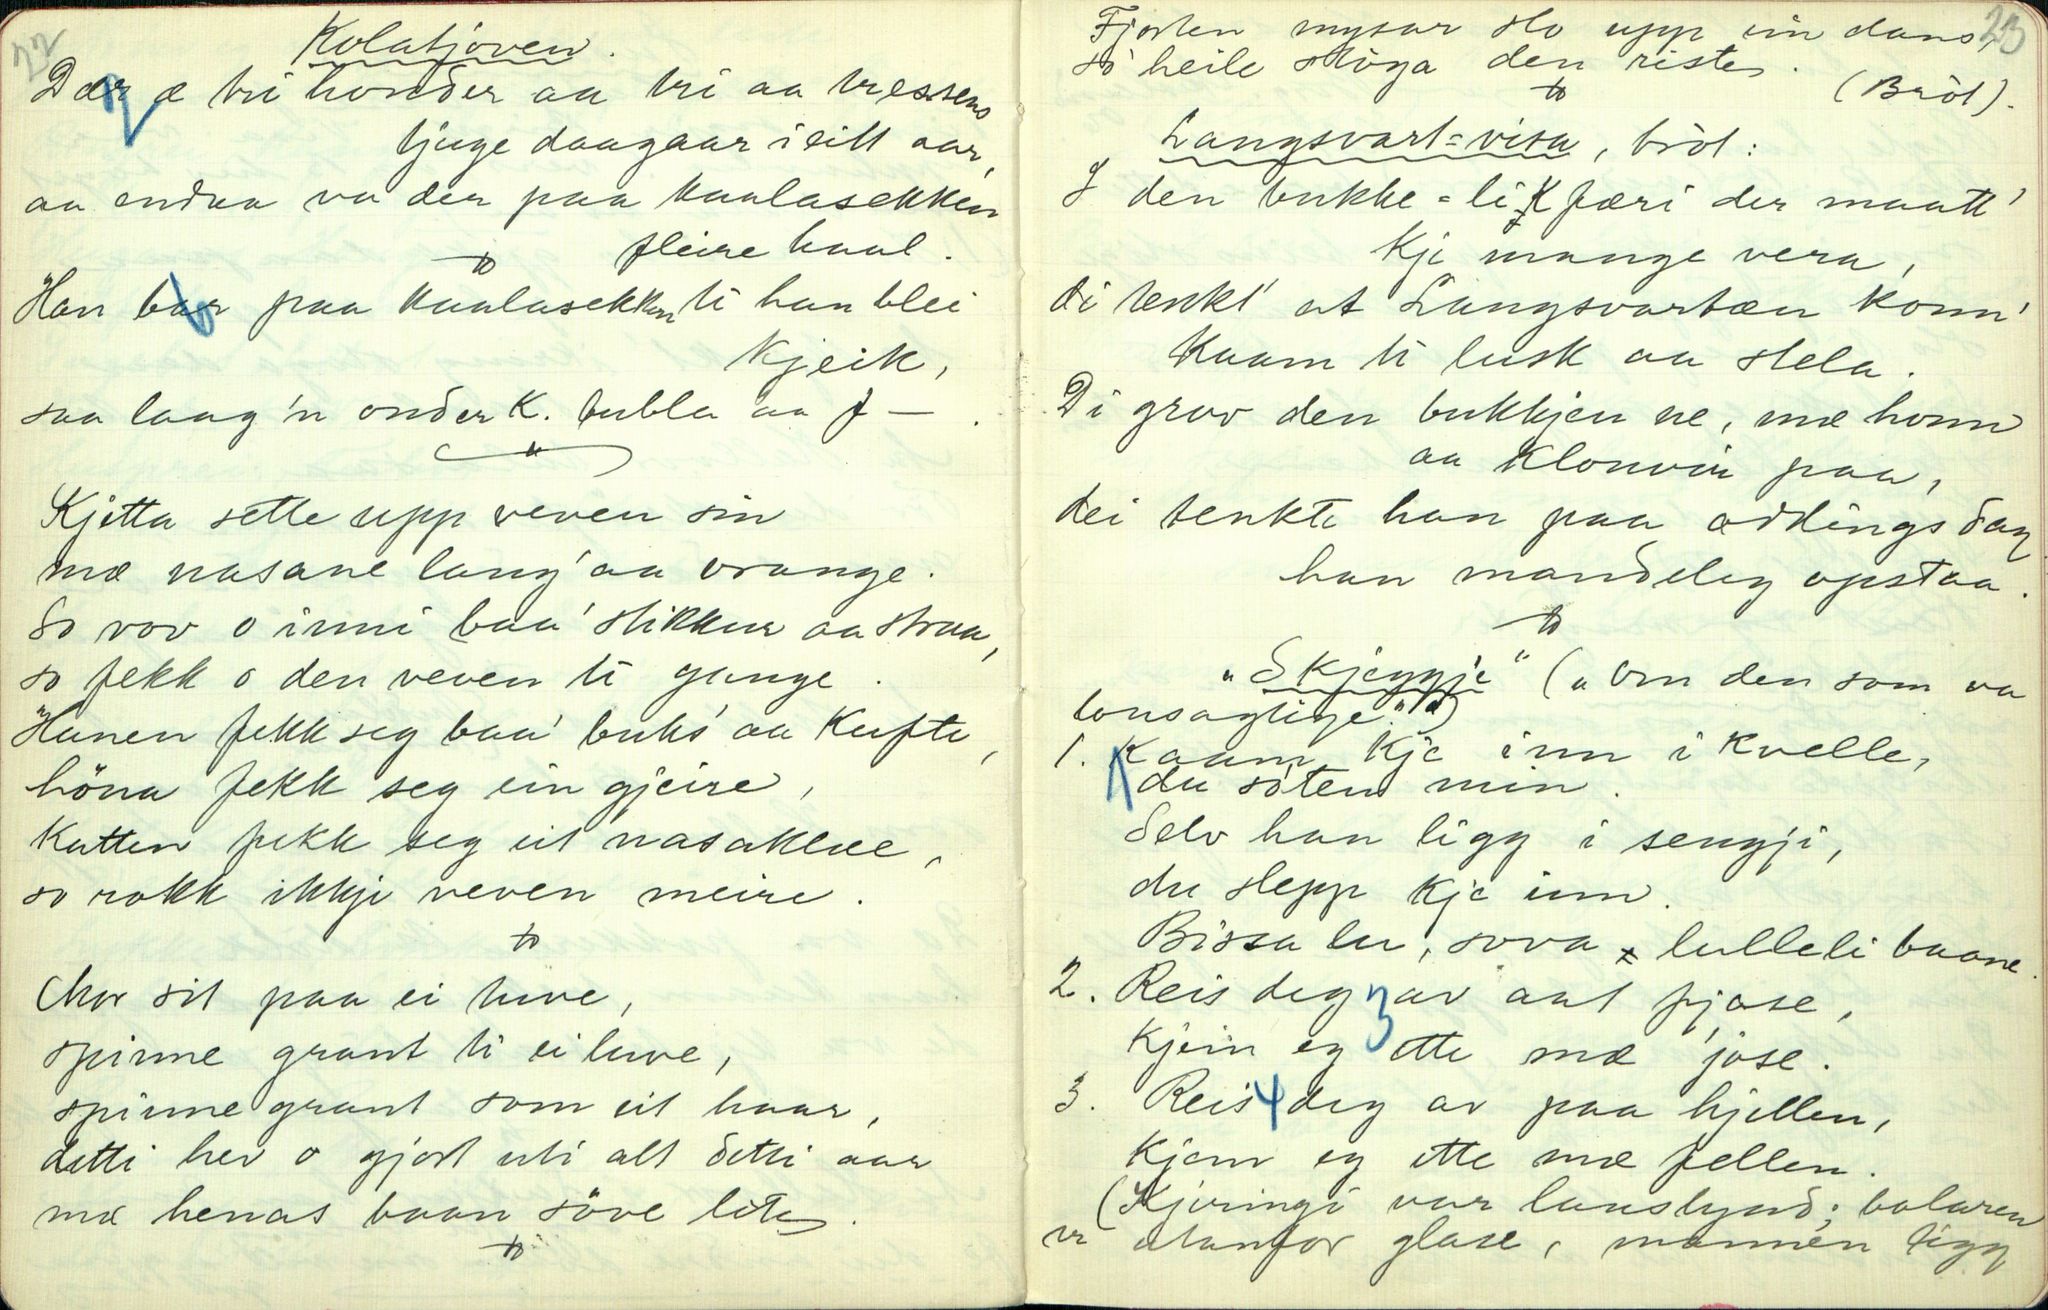 22
Kolatjoven.
Der æ tri honder aa tri aa tressens
tjuge daagaar i eitt aar,
aa endaa va der paa kaalasekken
fleire haal.
Han bar paa kaalasekken ti han blei
kjeik,
saa laag'n onder K. bubla aa f—.
Kjetta sette upp veven sin
mæ nasane lang' aa vrange.
So vov o inni baa' stikkur aa straa,
so fekk o den veven ti gange.
Hanen fekk seg baa' buks' aa kufte,
höna fekk seg ein gjeire,
Katten fekk seg eit nasaklæe,
so rokk ikkje veven meire.
Mor sit paa ei tuve,
spinne grant ti ei luve,
spinne grant som eit haar,
detti hev o gjort uti alt detti aar
mæ henas baan söve lite.
23
Fjorten mysar slo upp ein dans,
so heile stöga den riste.
(Bròt).
Langsvart-visa, bròt:
I den bukke-likfæri der maatt'
kje mange vera,
di tenkt' at Langsvartæn konn'
kaam ti lusk aa stela.
Di grov den bukkjen ne, mæ honn
aa klouvin paa,
dei tenkte han paa addingsdag
han mandeleg opstaa.
"Skjeggje" ("Om den som va
lonsagtige.")
1. Kaam kje inn i kvelle,
du söten min.
Selv han ligg i sengji,
du slepp kje inn.
Bissa lu, sova lulleli baane.
2. Reis deg av aat fjose,
kjem eg ette mæ jose.
3. Reis deg av paa hjellen,
kjem eg ette mæ fellen.
(Kjeringi var lauslynd; belaren
er utanfor glase, mannen ligg